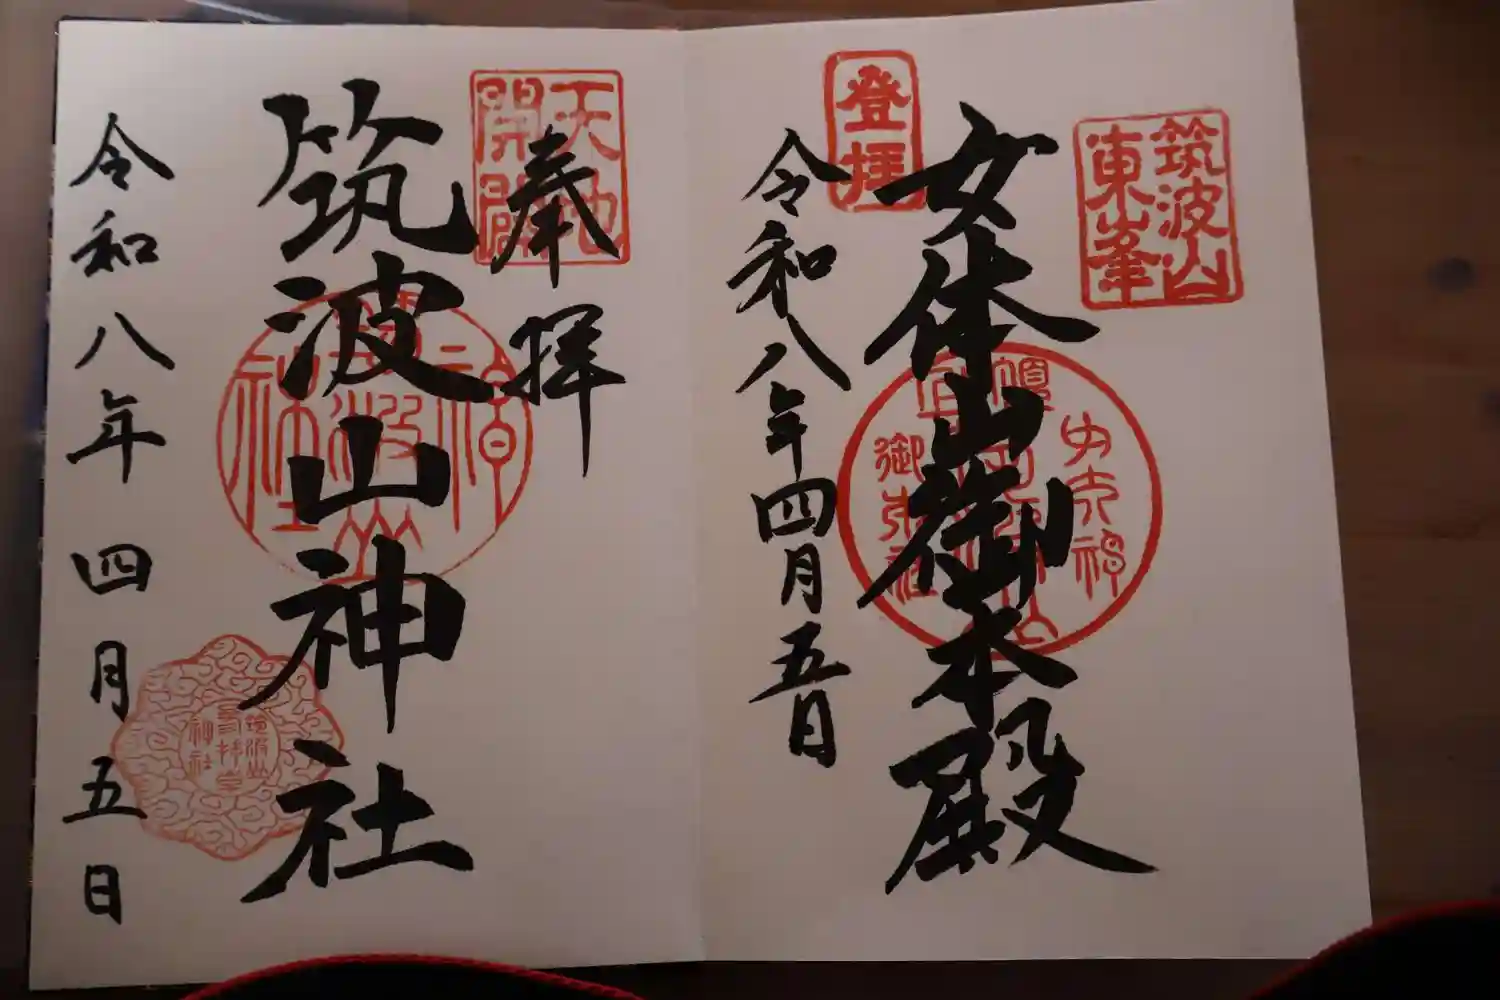 筑波山
東峯
女体山御本殿
登拝
令和八年四月五日
天地
開闢
奉拝
筑波山神社
令和八年四月五日